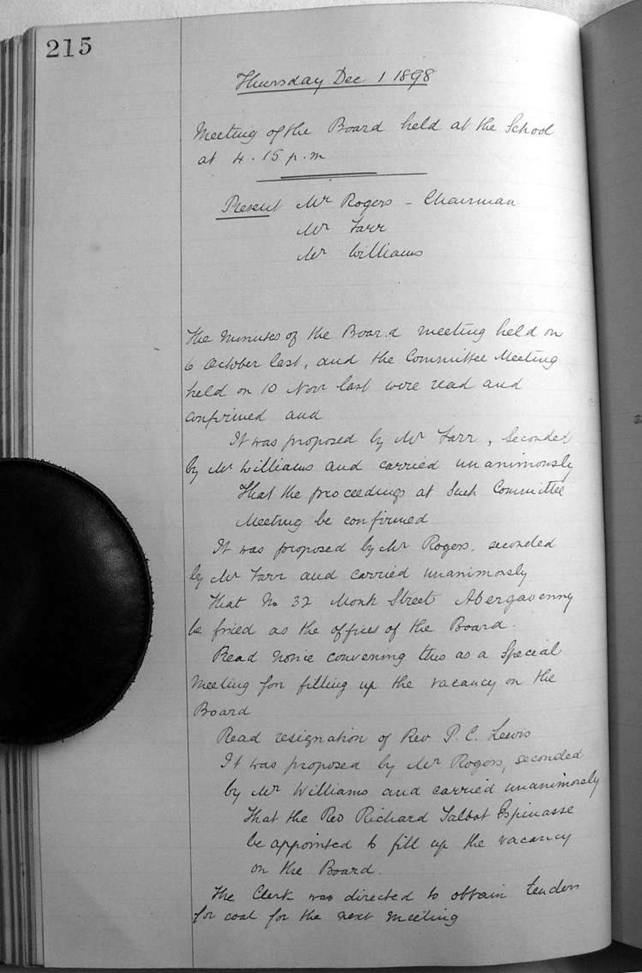 215
Thursday Dec 1 1898
Meeting of the Board held at the School
at 4.15 p.m
Present Mr Rogers - Chairman
Mr Farr
Mr Williams
The Minutes of the Board meeting held on
6 October last, and the Committee Meeting
held on 10 Novr last were read and
confirmed and
It was proposed by Mr Farr, seconded
by Mr Williams and carried unanimously
That the proceedings at such Committee
Meeting be confirmed
It was proposed by Mr Rogers, seconded
by Mr Farr and carried unanimously
That No 32 Monk Street Abergavenny
be fixed as the offices of the Board.
Read notice convening this as a Special
Meeting for filling up the vacancy on the
Board
Read resignation of Rev P. C. Lewis
It was proposed by Mr Rogers, seconded
by Mr Williams and carried unanimously
That the Rev Richard Talbot Espinasse
be appointed to fill up the vacancy
on the Board.
The Clerk was directed to obtain tenders
for coal for the next Meeting